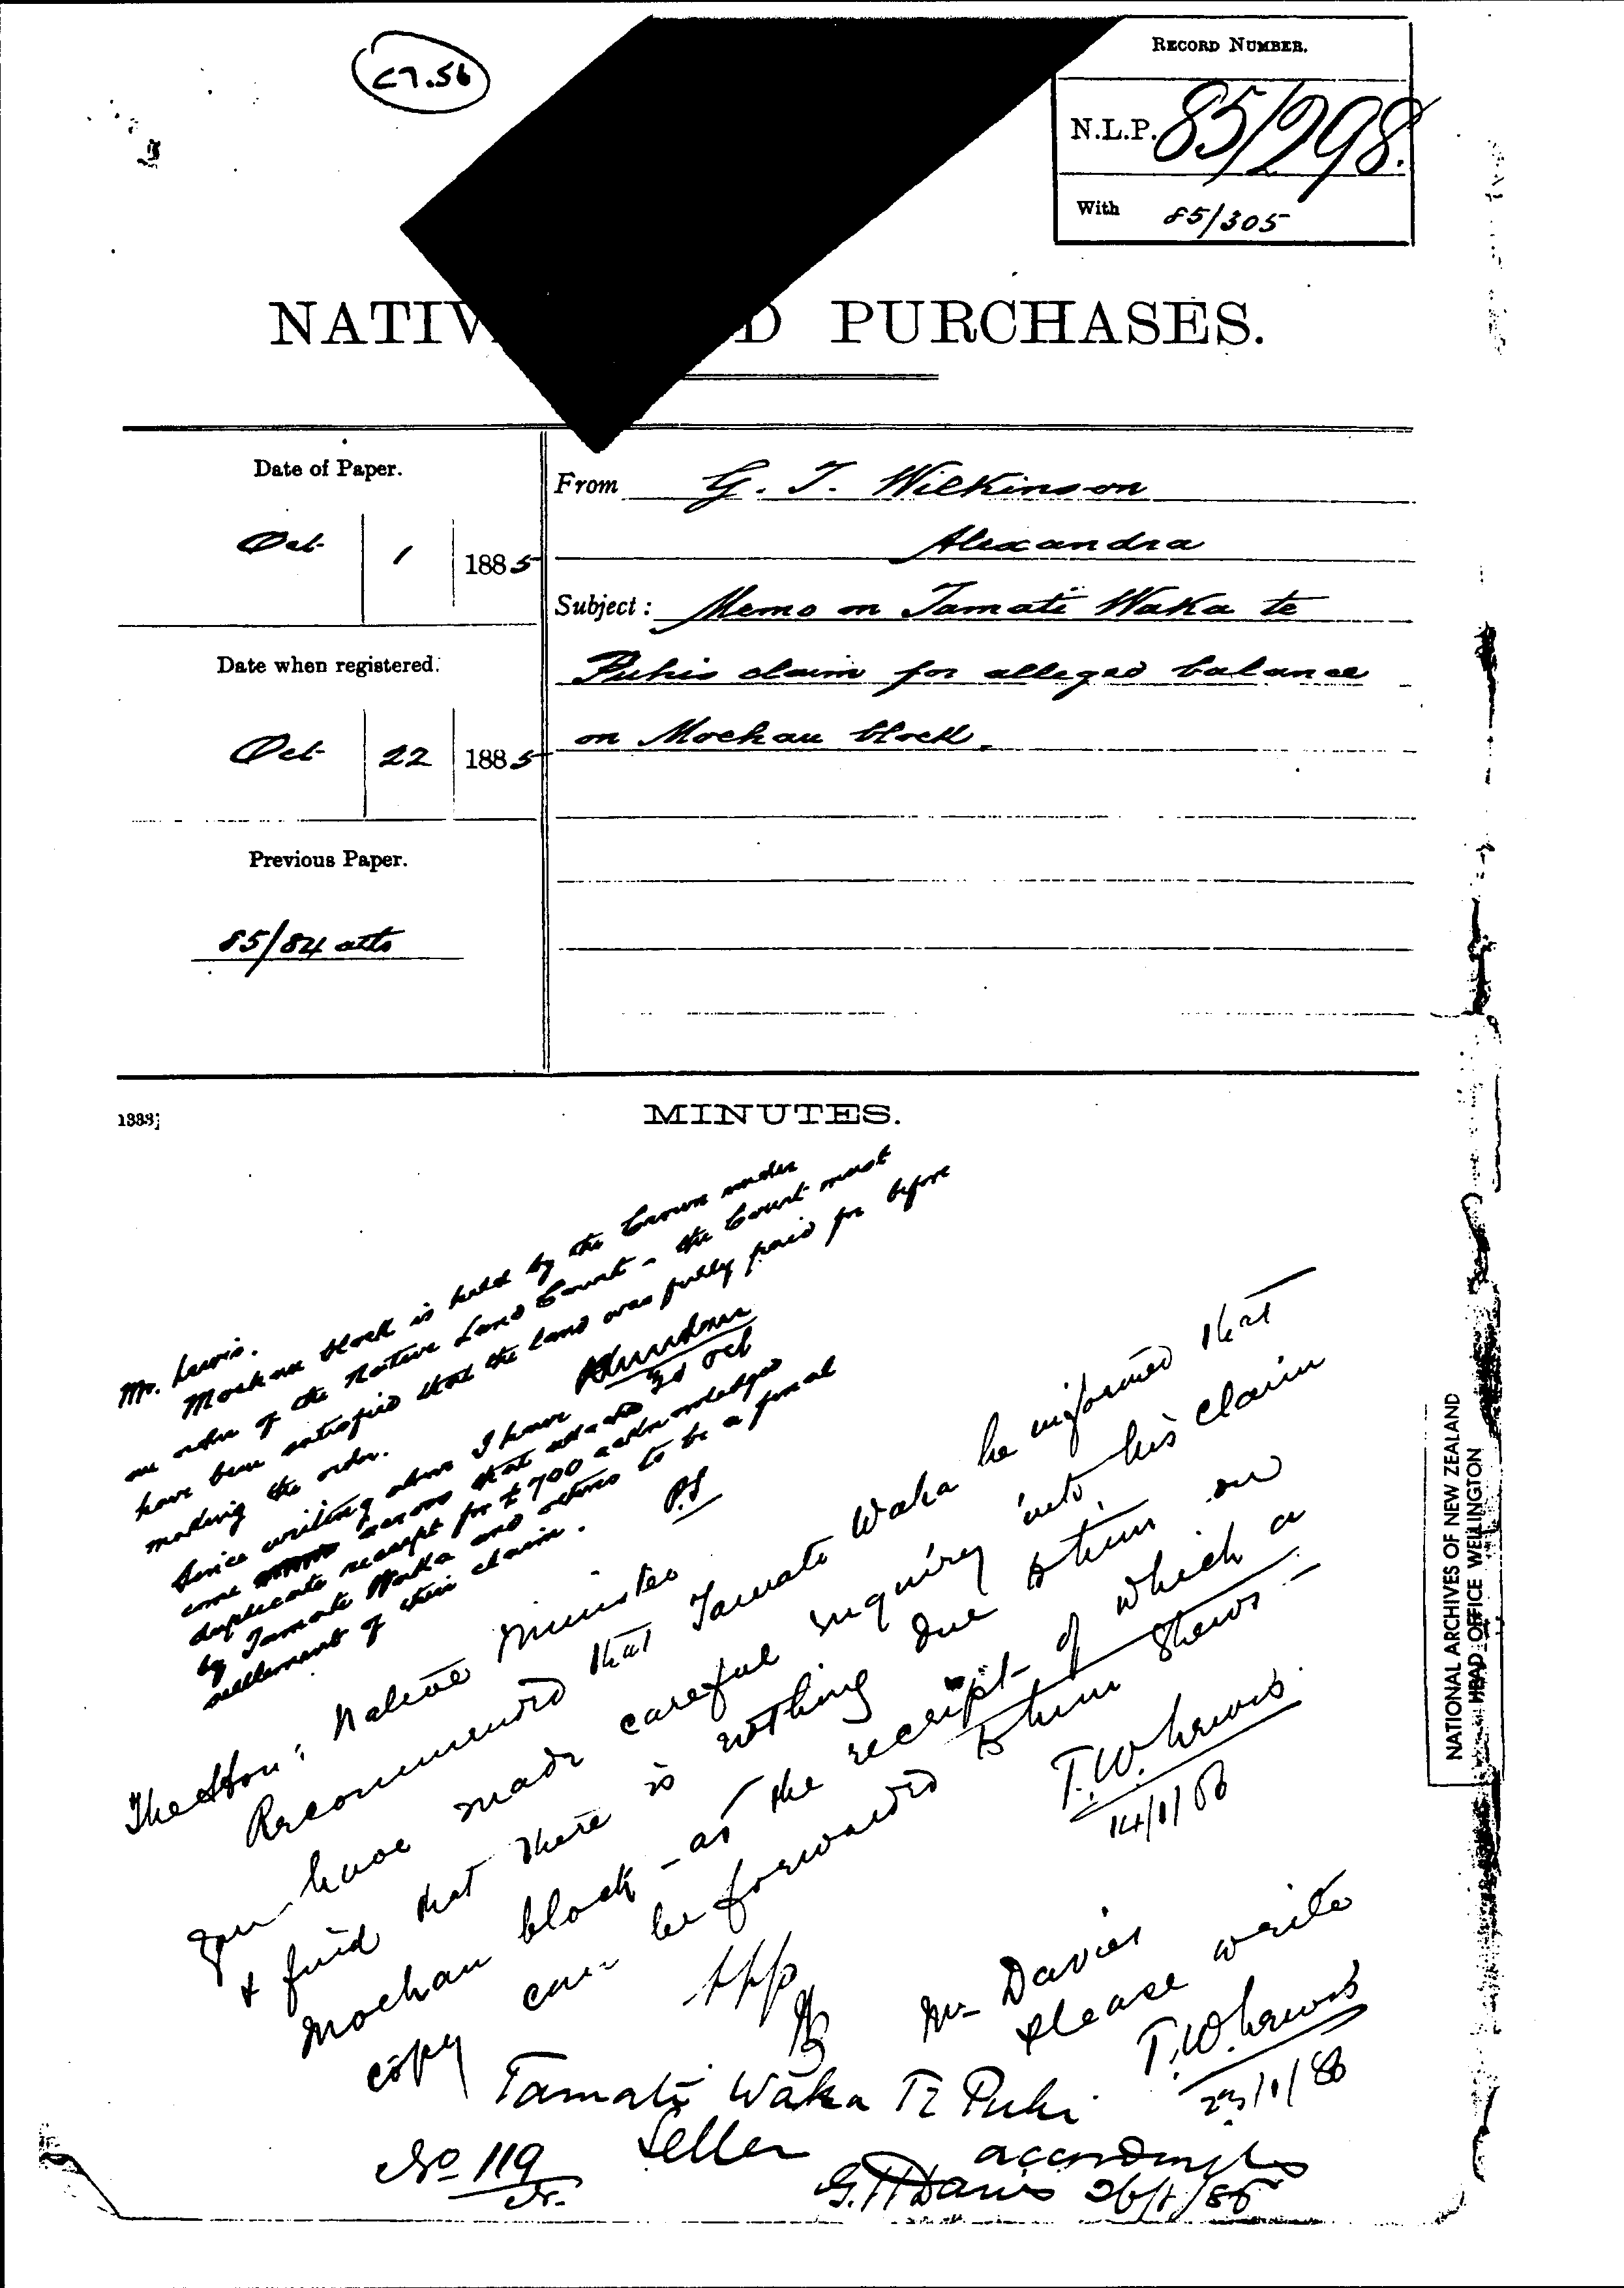 C7.56
RECORD NUMBER.
N.L.P. 85/298.
With 85/305
NATIV D PURCHASES.
Date of Paper.
Oct 1 1885
Date when registered.
Oct 22 1885
Previous Paper.
85/84 atts
From G. T. Wilkinson
Alexandra
Subject: Memo on Tamati Waka te
Puhis claim for alleged balance
on Moehau block.
1333]
MINUTES.
Mr. Lewis.
Moehau block is held by the Crown under
an order of the Native Land Court - the Court must
have been satisfied that the land was fully paid for before
making the order.
P Sheridan
Oct
Since writing above I have
come across that
duplicate receipt for £700 acknowledged
by Tamati Waka and others to be a final
settlement of their claim.
P.S
The Hon: Native Minister
Recommended that Tamati Waka be informed that
you have made careful inquiry into his claim
& find that there is nothing due to him on
Moehau block - as the receipt of which a
copy can be forwarded to him shews -
T.W. Lewis
14/1/86
App
JB
Mr Davies
please write
T.W. Lewis
23/1/86
Tamati Waka Te Puhi
Letter accordingly
No 119
G.H Davies 26/1/86
NATIONAL ARCHIVES OF NEW ZEALAND
HEAD OFFICE WELLINGTON